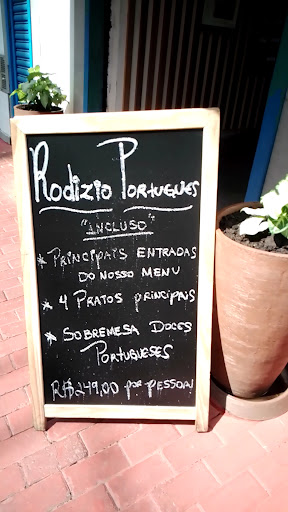 Rodizio Portugues
"INCLUSO"
* PRINCIPAIS ENTRADAS
DO NOSSO MENU
* 4 PRATOS PRINCIPAIS
* SOBREMESA DOCES
PORTUGUESES
R$249,00 POR PESSOA!